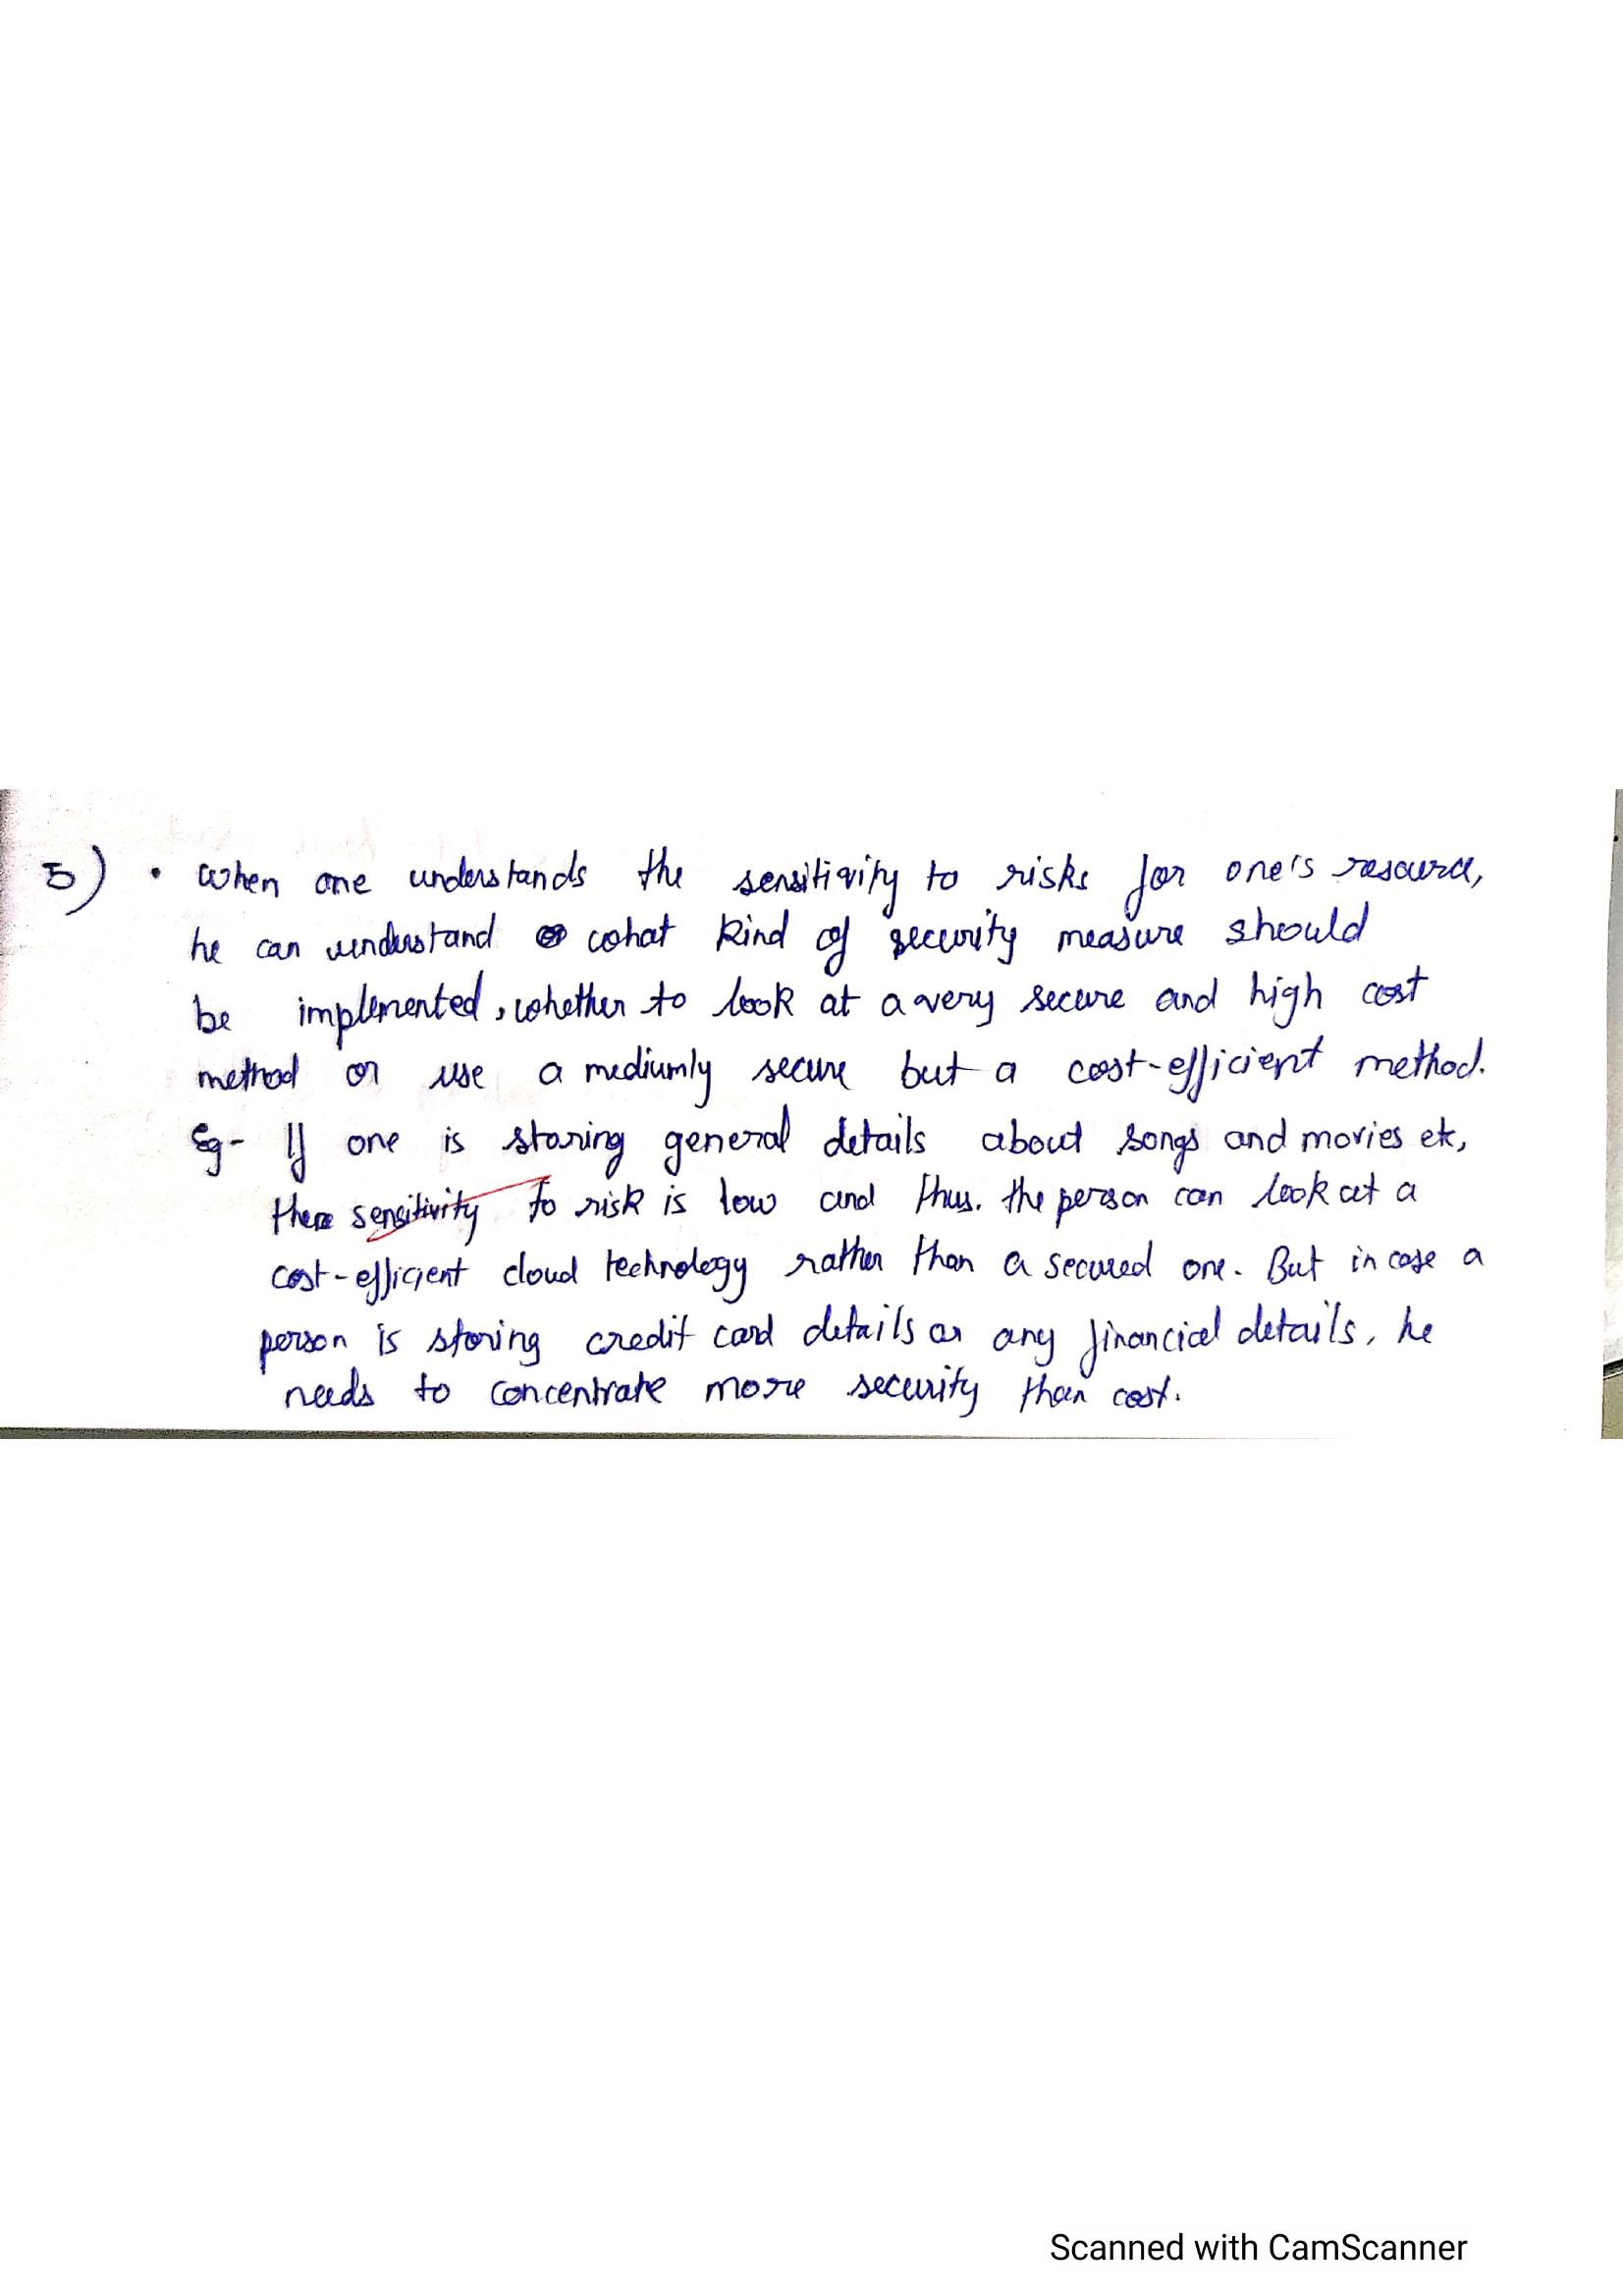 5) • When one understands the sensitivity to risks for one's resource,
he can understand what kind of security measure should
be implemented, whether to look at a very secure and high cost
method or use a mediumly secure but a cost-efficient method.
Eg- If one is storing general details about songs and movies etc,
there sensitivity to risk is low and thus. the person can look at a
cost-efficient cloud technology rather than a secured one. But in case a
person is storing credit card details or any financial details, he
needs to concentrate more security than cost.
Scanned with CamScanner